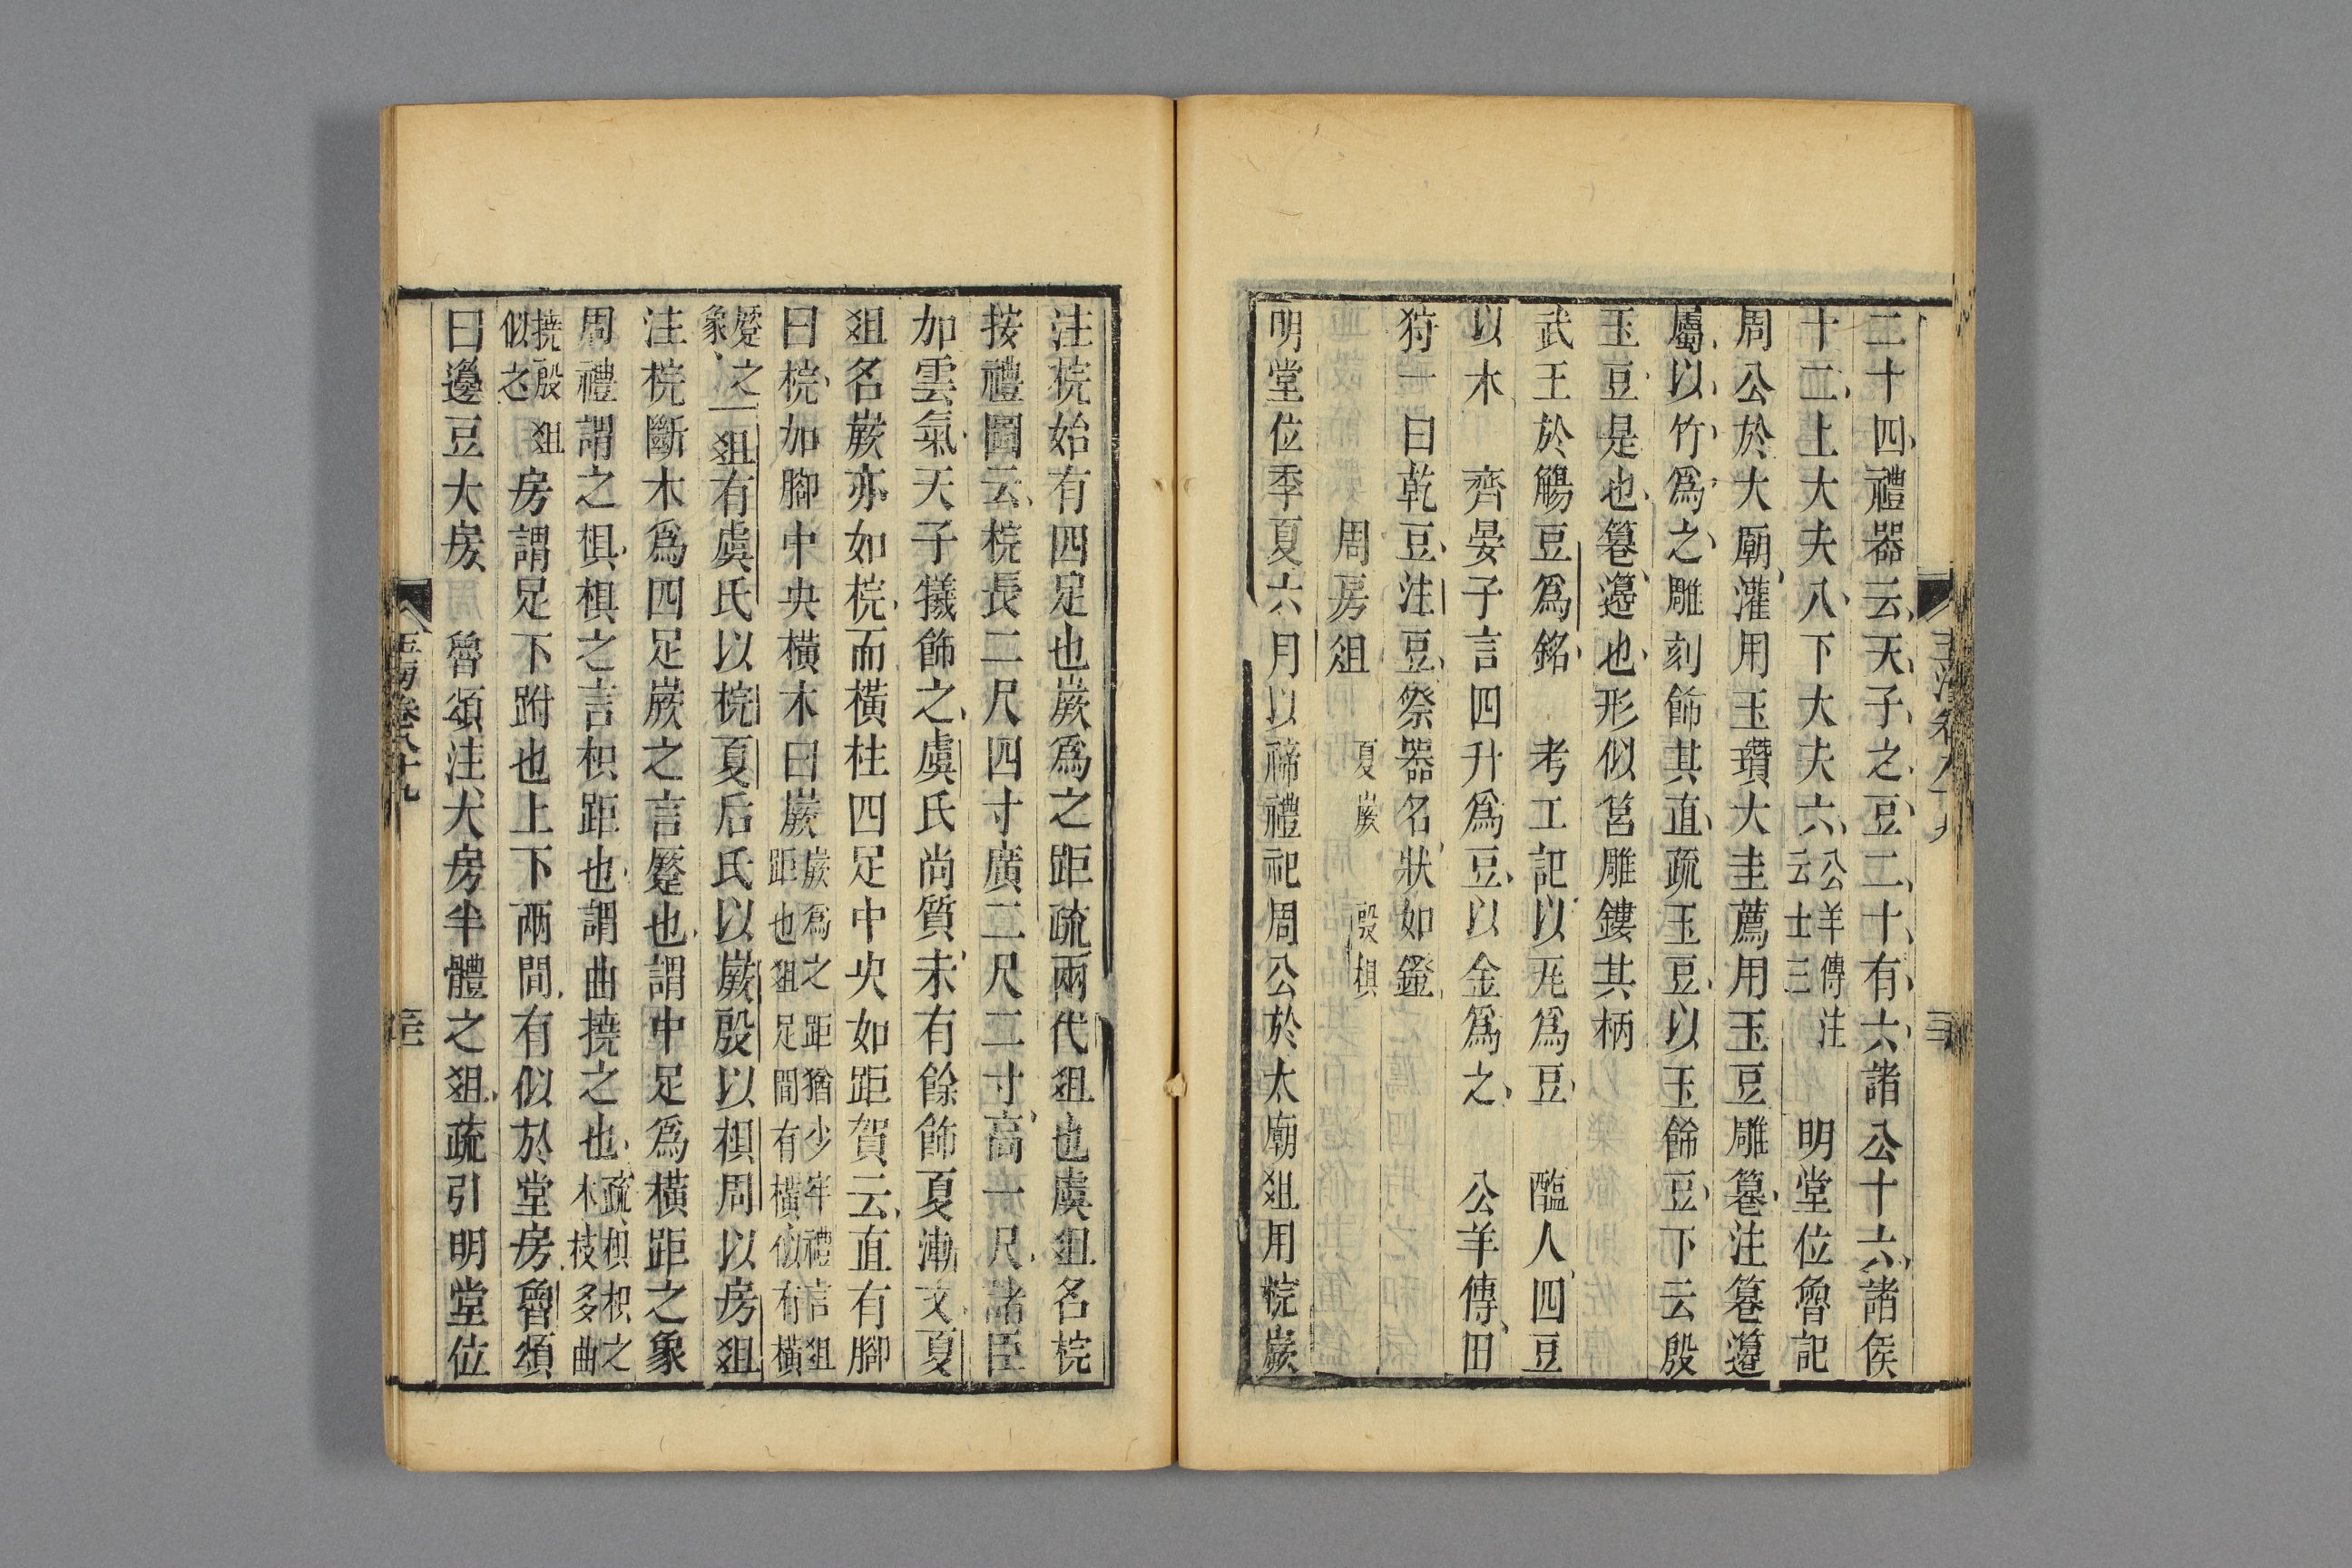 二十四禮器云天子之豆二十有六諸公十六諸侯
十二上大夫八下大夫六公羊傳注云士三 明堂位魯記
周公於大廟灌用玉瓚大圭薦用玉豆雕篹注篹籩
屬以竹爲之雕刻飾其直疏玉豆以玉餙豆下云殷
玉豆是也篹籩也形似筥雕鏤其柄
武王於觴豆爲銘 考工記以瓦爲豆 醢人四豆
以木 齊晏子言四升爲豆以金爲之 公羊傳田
狩一曰乾豆注豆祭器名狀如鐙
周房俎 夏嶡 殷椇
明堂位季夏六月以禘禮祀周公於太廟俎用梡嶡
注梡始有四足也嶡爲之距疏兩代俎也虞俎名梡
按禮圖云梡長二尺四寸廣一尺二寸高一尺諸臣
加雲氣天子犧飾之虞氏尚質未有餘飾夏漸文夏
俎名嶡亦如梡而橫柱四足中央如距賀云直有腳
曰梡加腳中央橫木曰嶡嶡爲之距猶少牢禮言俎距也俎足間有橫似有橫
蹙之象 俎有虞氏以梡夏后氏以嶡殷以椇周以房俎
注梡斷木爲四足嶡之言蹙也謂中足爲橫距之象
周禮謂之椇椇之言枳距也謂曲撓之也疏椇枳之木枝多曲
撓殷俎似之 房謂足下跗也上下兩間有似於堂房魯頌
曰邊豆大房 魯頌注大房半體之俎疏引明堂位
玉海卷八十九